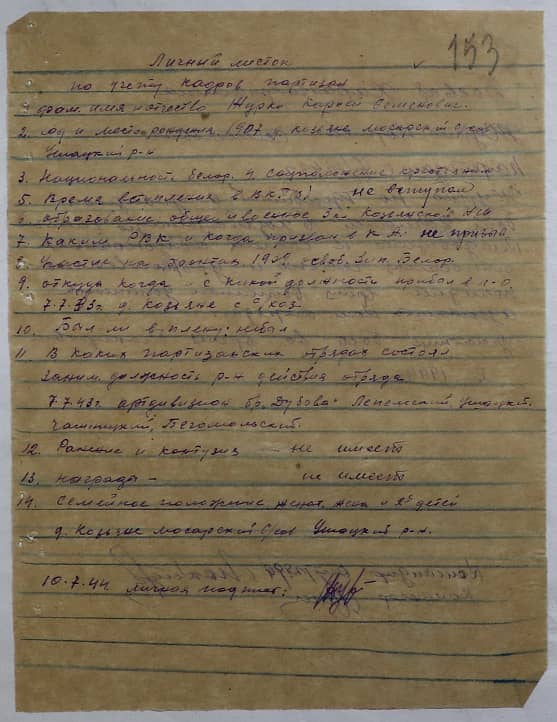 153
Личный листок
по учету кадров партизан
1. фам. имя отчество Журко Сергей Семенович.
2. год и месторождения 1907 д. козьяне мосарский с/сов
Ушацкий р-н
3. Национальность белор. 4. Соцположение крестьянин
5. Время вступления в ВКП(б) не вступал
6. образование общее и военное 3кл
7. Каким РВК и когда призван в К.А. не призыв
8. Участие на фронтах 1939 Зап. Белор.
9. откуда когда и с какой должности прибыл в п-о.
7.7.43г. д. козьяне
10. Был ли в плену: не был
11. В каких партизанских отрядах состоял
заним. должность р-н действия отряда
7.7.43г. артдивизион бр. Дубова Лепельский, Ушацкий.
Чашницкий, Бегомольский.
12. Ранение и контузия не имеет
13. награды - не имеет
14. Семейное положение, женат, жена и детей
д. Козьяне мосарский с/сов Ушацкий р-н.
10.7.44 личная подпись: